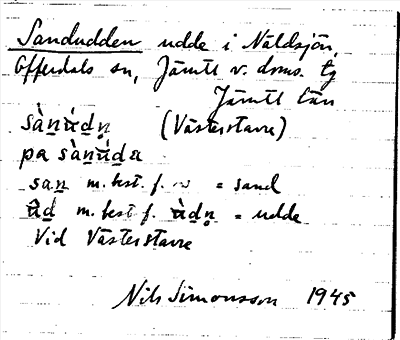 Sandudden udde i Näldsjön,
Offerdals sn, Jämtl v. doms. tg
Jämtl län
sànu̠̇́dn̥ (Västerstavre)
pa sànu̠̇́da
san m. best. f. ~ = sand
ùd m. best f. ùdn̥ = udde
Vid Västerstavre
Nils Simonsson 1945